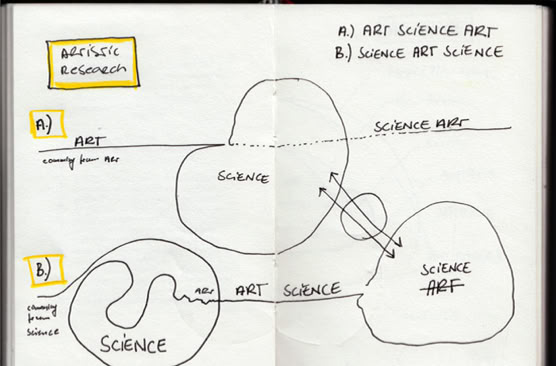 ARTISTIC
RESEARCH
A.) ART SCIENCE ART
B.) SCIENCE ART SCIENCE
A.)
ART
comming from ART
SCIENCE ART
SCIENCE
B.)
comming
from
Science
ART
ART SCIENCE
SCIENCE
SCIENCE
ART